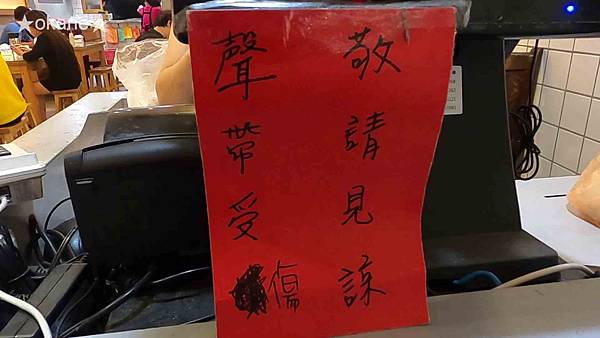 敬請見諒
聲帶受傷